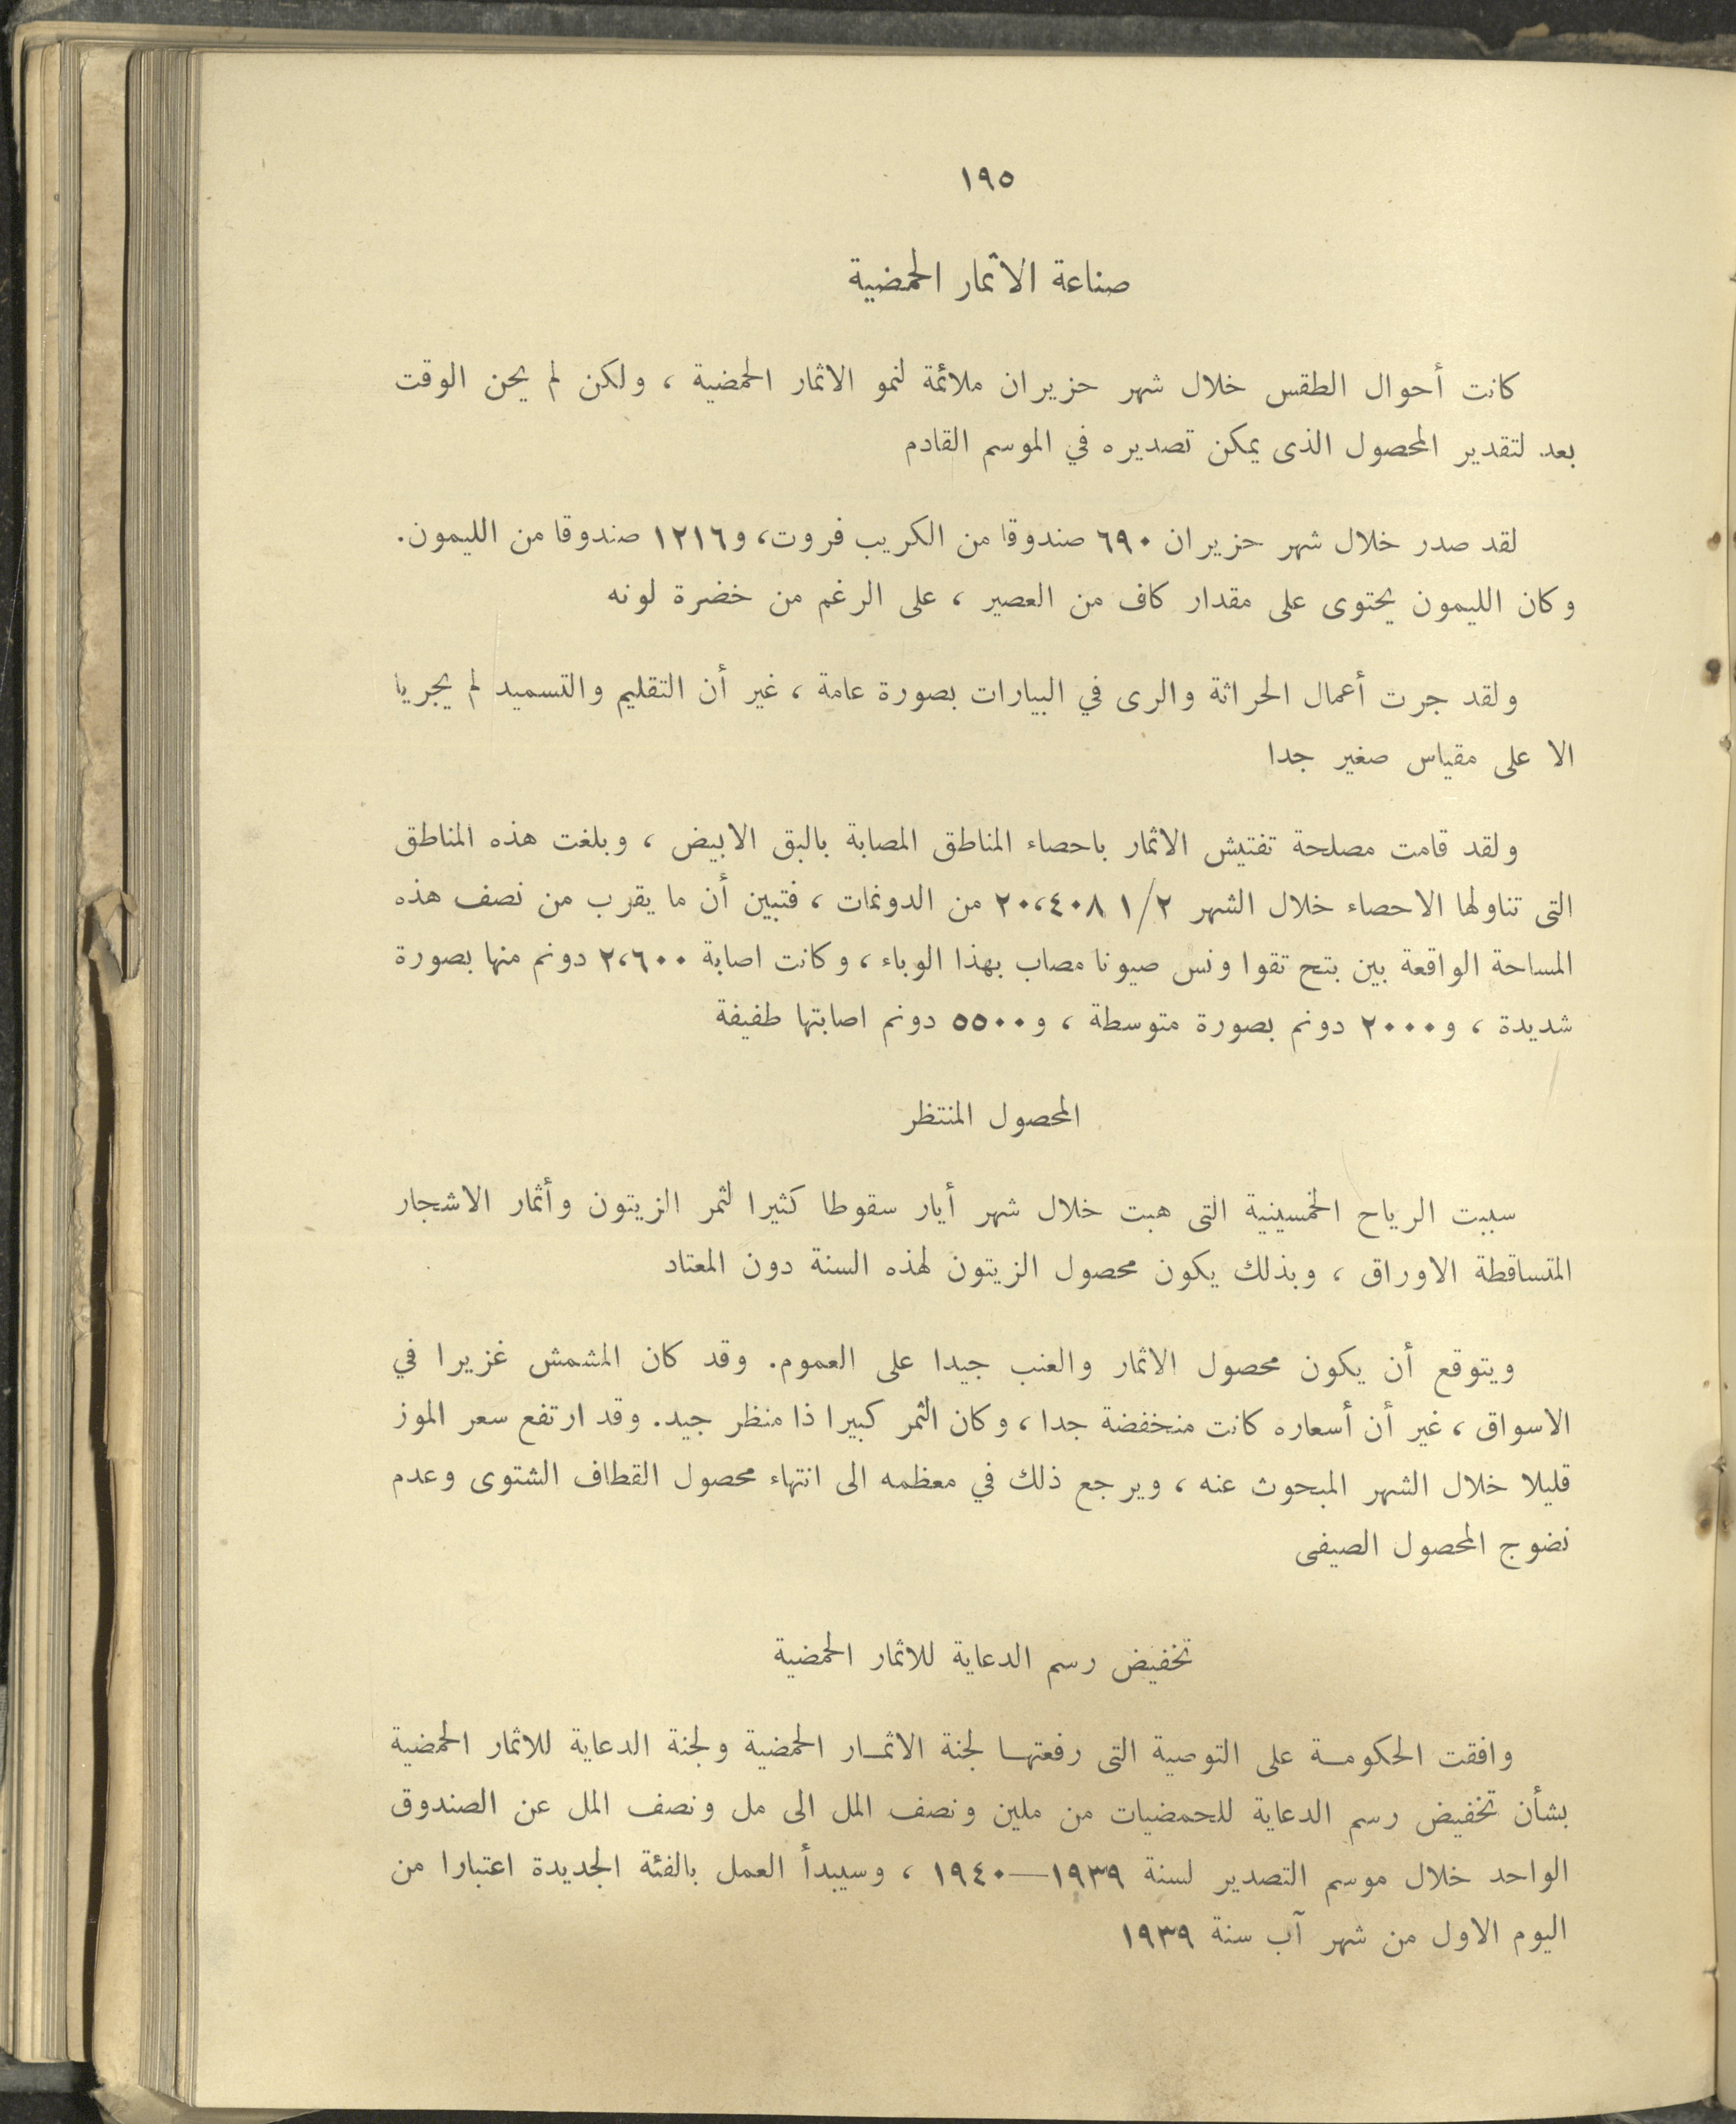 ١٩٥
صناعة الاثمار الحمضية
كانت أحوال الطقس خلال شهر حزيران ملائمة لنمو الاثمار الحمضية ، ولكن لم يحن الوقت
بعد لتقدير المحصول الذى يمكن تصديره في الموسم القادم
لقد صدر خلال شهر حزيران ٦٩٠ صندوقا من الكريب فروت، و١٢١٦ صندوقا من الليمون.
وكان الليمون يحتوى على مقدار كاف من العصير ، على الرغم من خضرة لونه
ولقد جرت أعمال الحراثة والرى في البيارات بصورة عامة ، غير أن التقليم والتسميد لم يجريا
الا على مقياس صغير جدا
ولقد قامت مصلحة تفتيش الاثمار باحصاء المناطق المصابة بالبق الابيض ، وبلغت هذه المناطق
التى تناولها الاحصاء خلال الشهر ١/٢ ٢٠،٤٠٨ من الدونمات ، فتبين أن ما يقرب من نصف هذه
المساحة الواقعة بين بتح تقوا ونس صيونا مصاب بهذا الوباء ، وكانت اصابة ٢،٦٠٠ دونم منها بصورة
شديدة ، و٢٠٠٠ دونم بصورة متوسطة ، و٥٥٠٠ دونم اصابتها طفيفة
المحصول المنتظر
سببت الرياح الخمسينية التى هبت خلال شهر أيار سقوطا كثيرا لثمر الزيتون وأثمار الاشجار
المتساقطة الاوراق ، وبذلك يكون محصول الزيتون لهذه السنة دون المعتاد
ويتوقع أن يكون محصول الاثمار والعنب جيدا على العموم. وقد كان المشمش غزيرا في
الاسواق ، غير أن أسعاره كانت منخفضة جدا ، وكان الثمر كبيرا ذا منظر جيد. وقد ارتفع سعر الموز
قليلا خلال الشهر المبحوث عنه ، ويرجع ذلك في معظمه الى انتهاء محصول القطاف الشتوى وعدم
نضوج المحصول الصيفى
تخفيض رسم الدعاية للاثمار الحمضية
وافقت الحكومة على التوصية التى رفعتها لجنة الاثمار الحمضية ولجنة الدعاية للاثمار الحمضية
بشأن تخفيض رسم الدعاية للحمضيات من ملين ونصف المل الى مل ونصف المل عن الصندوق
الواحد خلال موسم التصدير لسنة ١٩٣٩—١٩٤٠ ، وسيبدأ العمل بالفئة الجديدة اعتبارا من
اليوم الاول من شهر آب سنة ١٩٣٩